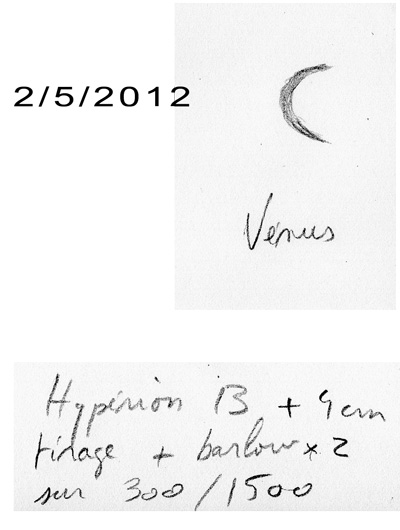 2/5/2012
Vénus
Hypérion 13 + 4 cm
tirage + barlow x 2
sur 300/1500